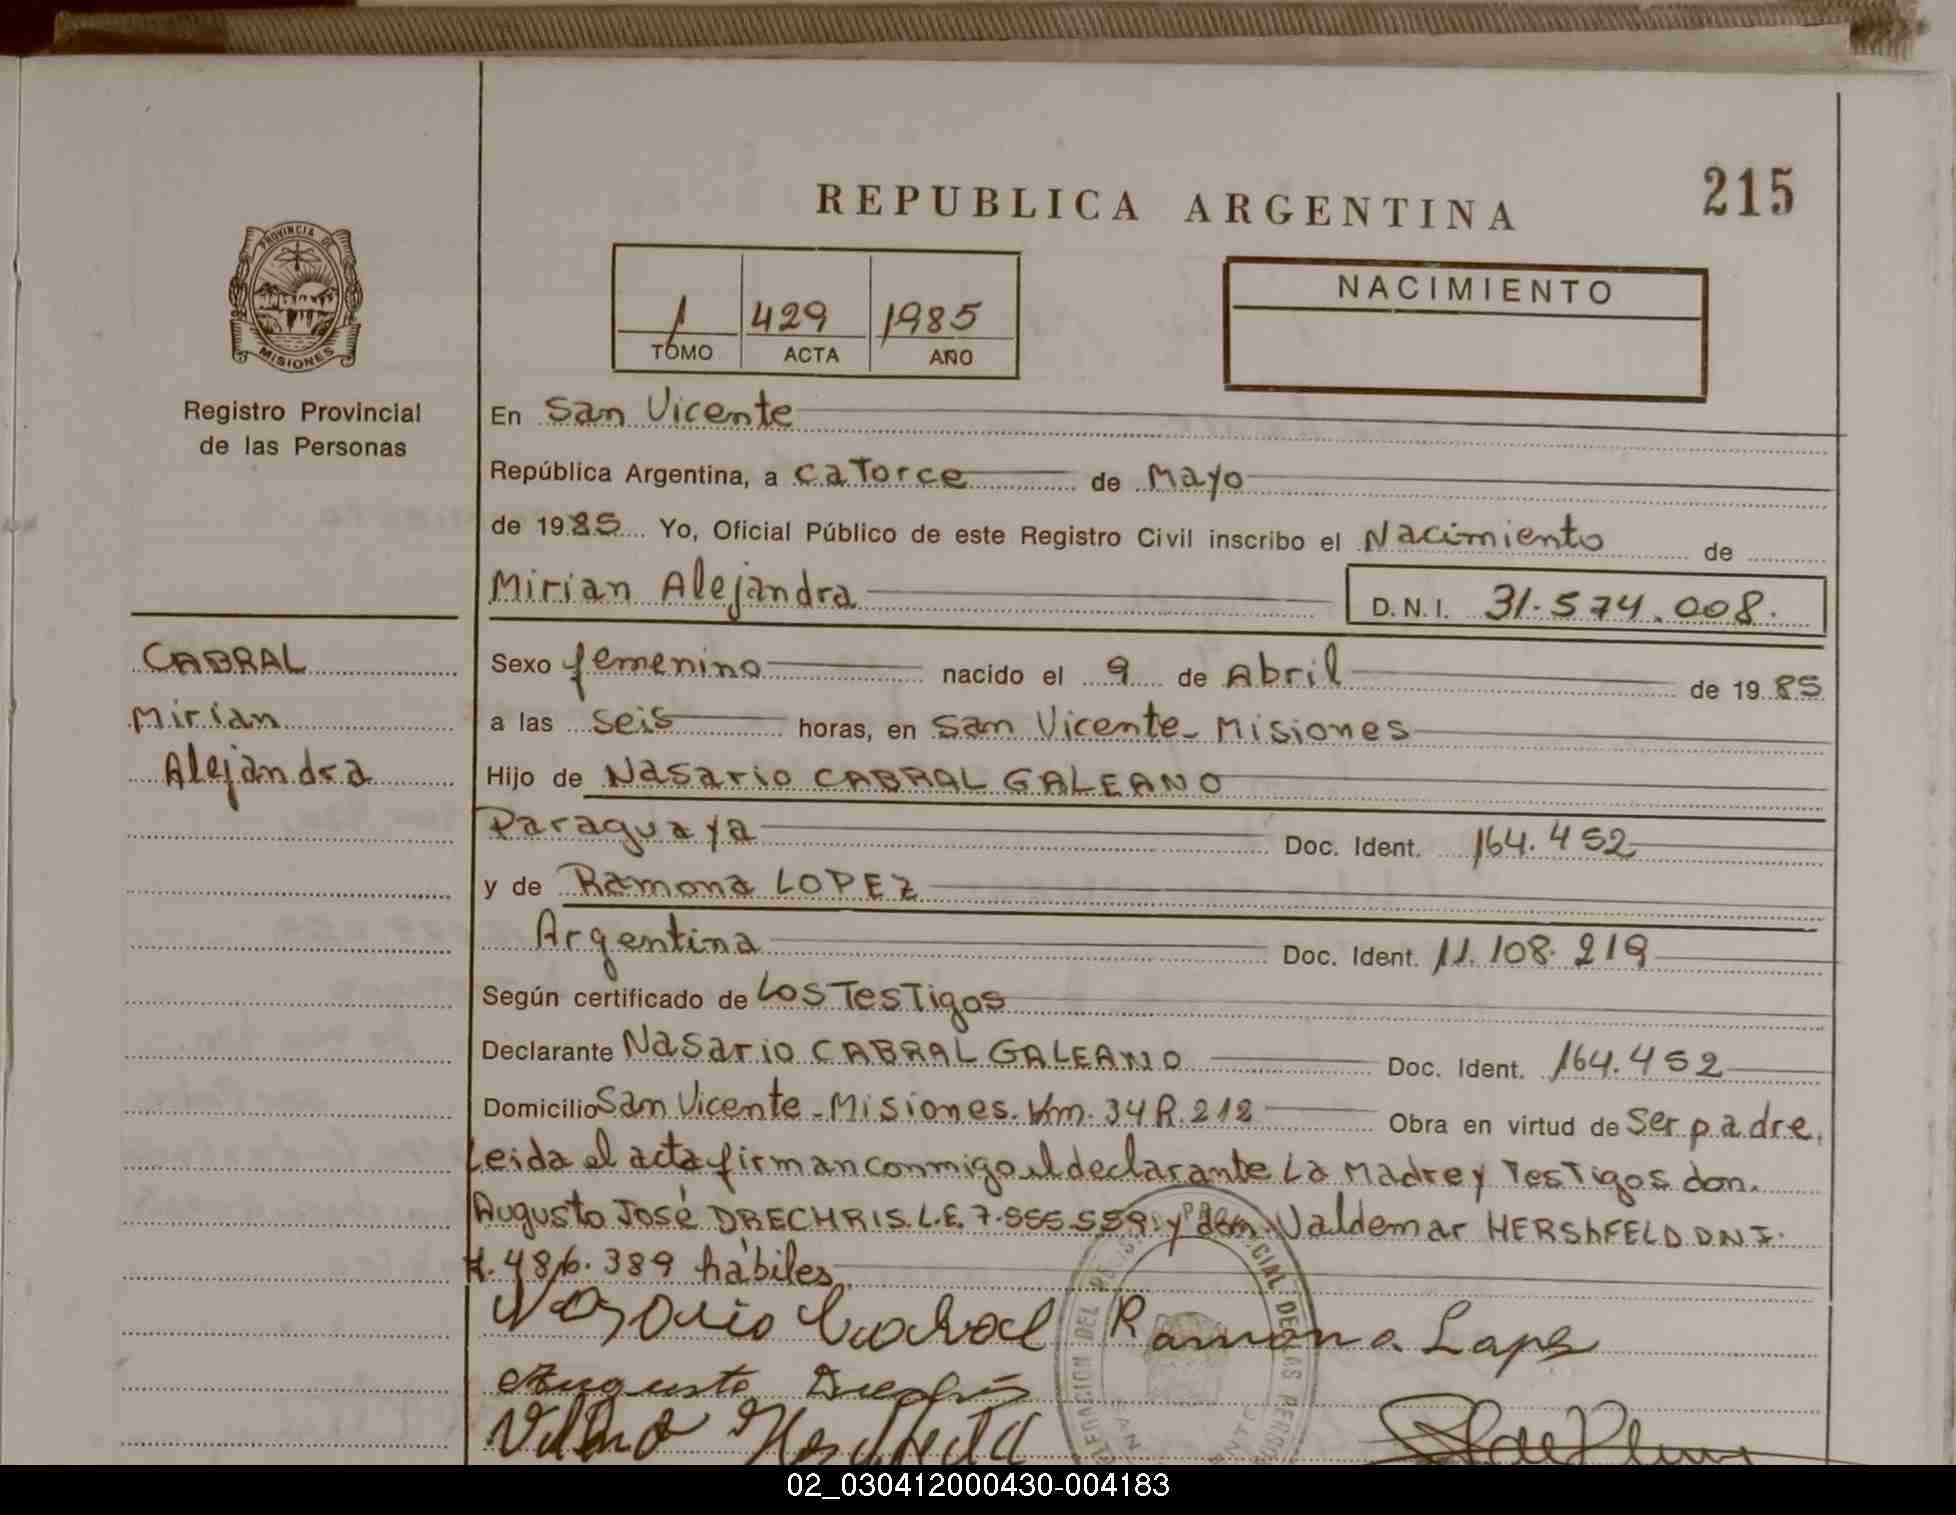 REPUBLICA ARGENTINA
215
PROVINCIA DE
MISIONES
Registro Provincial
de las Personas
1 429 1985
TOMO ACTA AÑO
NACIMIENTO
En San Vicente
República Argentina, a catorce de Mayo
de 1985 Yo, Oficial Público de este Registro Civil inscribo el Nacimiento de
Mirian Alejandra
D.N.I. 31.574.008.
CABRAL
Mirian
Alejandra
Sexo femenino nacido el 9 de Abril de 1985
a las seis horas, en San Vicente - Misiones
Hijo de Nasario CABRAL GALEANO
Paraguaya Doc. Ident. 164.452
y de Ramona LOPEZ
Argentina Doc. Ident. 11.108.219
Según certificado de Los Testigos
Declarante Nasario CABRAL GALEANO Doc. Ident. 164.452
Domicilio San Vicente - Misiones. Km. 34 R. 212 Obra en virtud de Ser padre.
Leida el acta firman conmigo el declarante La Madre y Testigos don.
Augusto José DRECHRIS. L.E. 7.555.559. y don Valdemar HERSHFELD D N I.
.486.389 hábiles
Nasario Cabral Ramona Lopez
Augusto
02_030412000430-004183